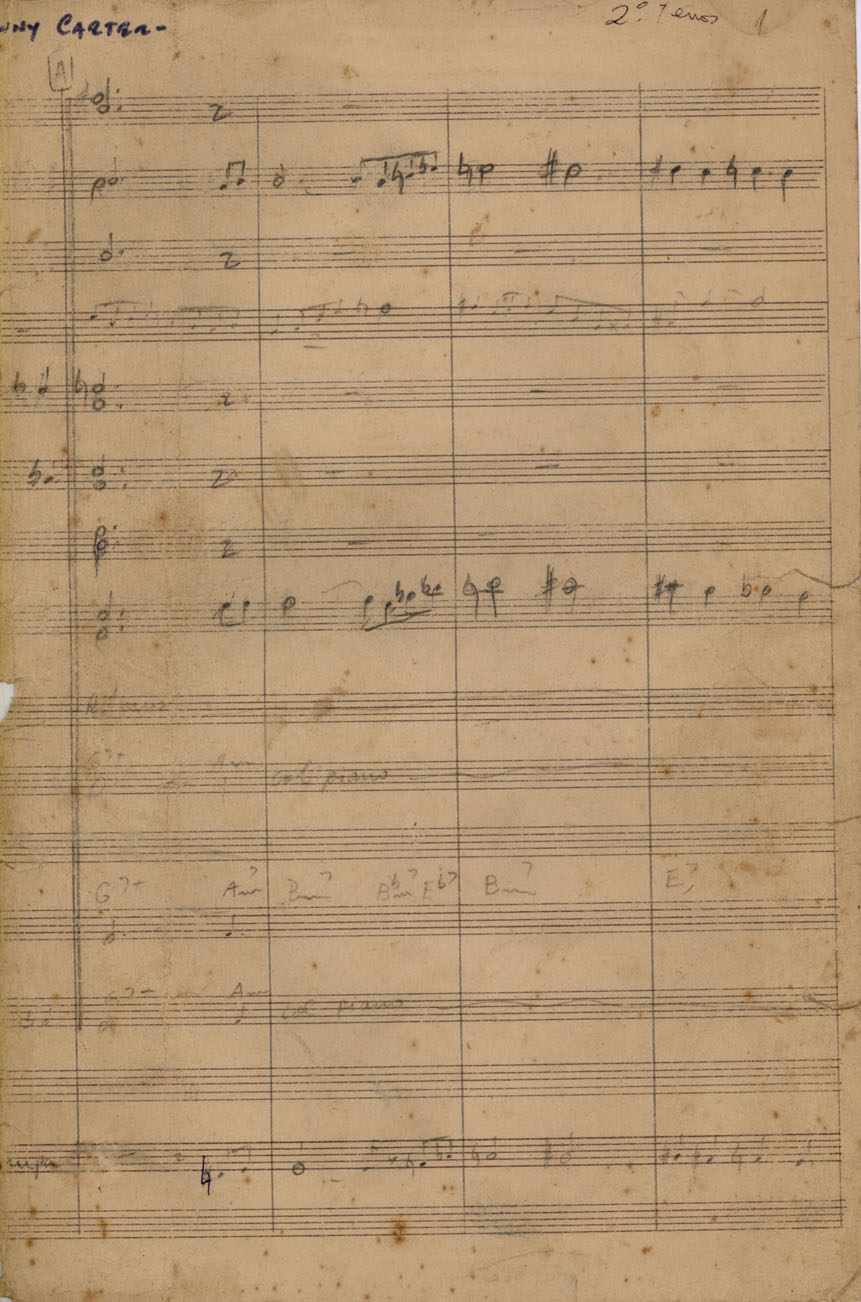 NNY CARTER-
2º Tenos 1
A
G7+ Am
col piano
G7+ Am7 Bm7 Bbm7 Eb7 Bm7 E7
G7+ Am
col piano